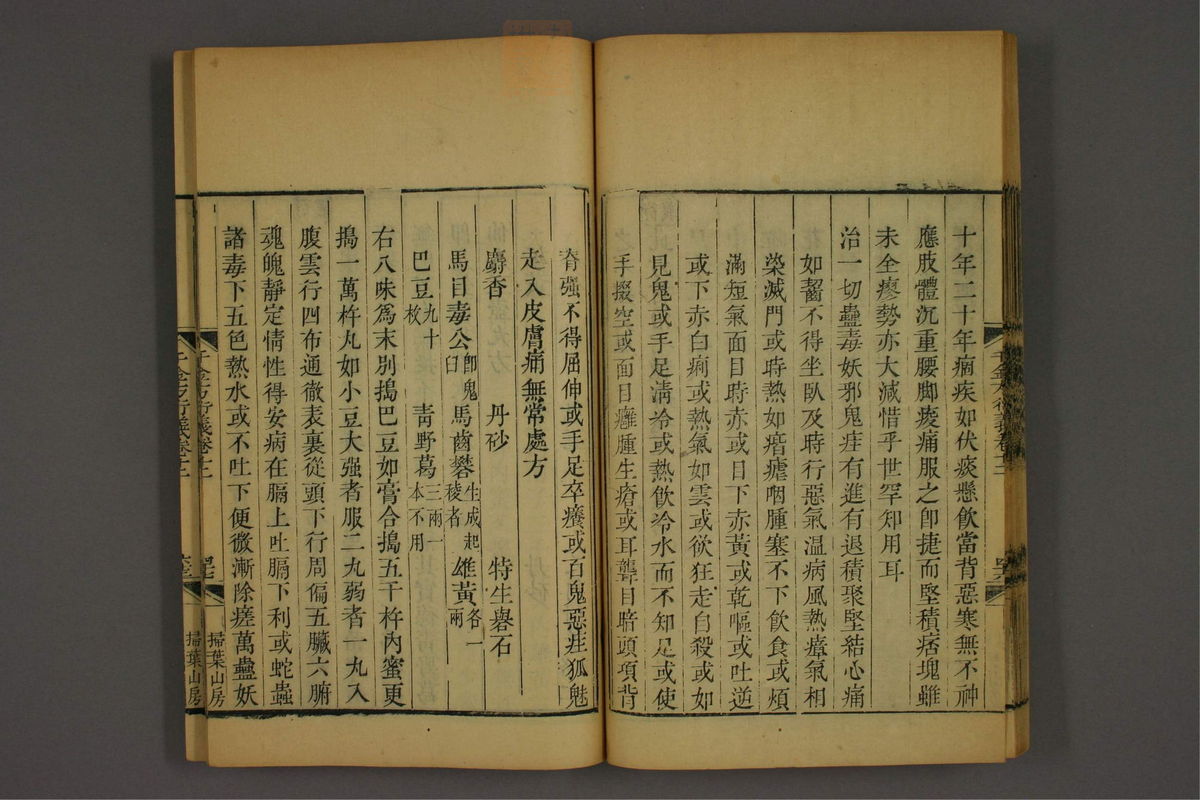 十年二十年痼疾如伏痰懸飲當背惡寒無不神
應肢體沉重腰脚痠痛服之卽捷而堅積痞塊雖
未全瘳勢亦大減惜乎世罕知用耳
治一切蠱毒妖邪鬼疰有進有退積聚堅結心痛
如齧不得坐臥及時行惡氣溫病風熱瘴氣相
染滅門或時熱如瘖瘧咽腫塞不下飲食或煩
滿短氣面目時赤或目下赤黃或乾嘔或吐逆
或下赤白痢或熱氣如雲或欲狂走自殺或如
見鬼或手足淸冷或熱飲冷水而不知足或使
手掇空或面目癰腫生瘡或耳聾目暗頭項背
脊强不得屈伸或手足卒癢或百鬼惡疰狐魅
走入皮膚痛無常處方
麝香 丹砂 特生礜石
馬目毒公卽鬼臼 馬齒礬生成起稜者 雄黃各一兩
巴豆九十枚 靑野葛三兩一本不用
右八味爲末別搗巴豆如膏合搗五千杵內蜜更
搗一萬杵丸如小豆大强者服二丸弱者一丸入
腹雲行四布通徹表裏從頭下行周徧五臟六腑
魂魄靜定情性得安病在膈上吐膈下利或蛇蟲
諸毒下五色熱水或不吐下便微漸除瘥萬蠱妖
千金方衍義卷十二
掃葉山房
掃葉山房